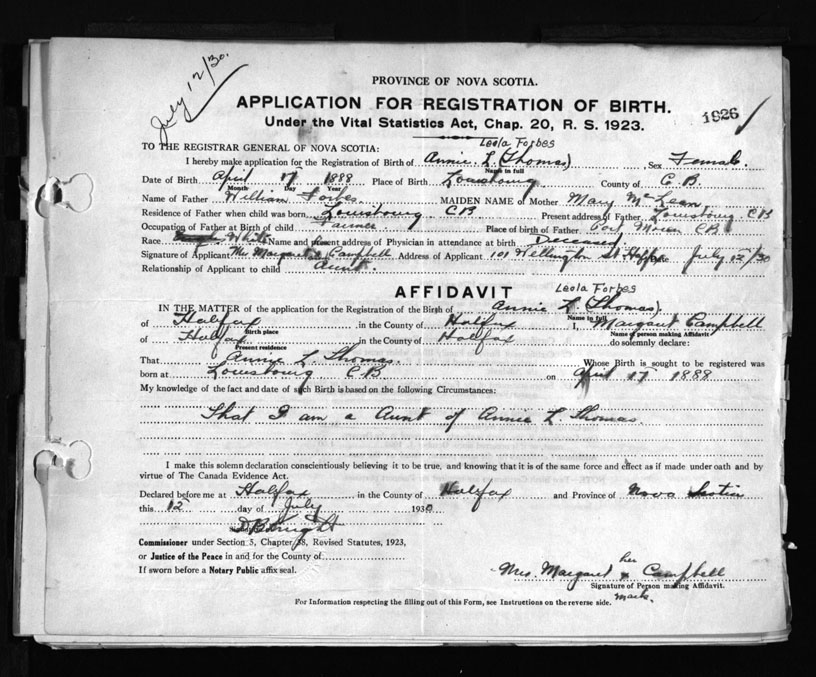 July 12/30.
PROVINCE OF NOVA SCOTIA.
APPLICATION FOR REGISTRATION OF BIRTH.
1926
Under the Vital Statistics Act, Chap. 20, R. S. 1923.
TO THE REGISTRAR GENERAL OF NOVA SCOTIA:
Leola Forbes
I hereby make application for the Registration of Birth of Annie L (Thomas) Sex Female
Name in full
Date of Birth April 17 1888 Place of Birth Louisbourg County of C B.
Month Day Year
Name of Father William Forbes MAIDEN NAME of Mother Mary McLean
Residence of Father when child was born Louisbourg CB Present address of Father Louisbourg CB
Occupation of Father at Birth of child Place of birth of Father Port Morien CB
Race White Name and present address of Physician in attendance at birth Deceased
Signature of Applicant Mrs Margaret Campbell Address of Applicant 101 Wellington St Hfx Date July 12/30
Relationship of Applicant to child Aunt.
AFFIDAVIT
Leola Forbes
IN THE MATTER of the application for the Registration of the Birth of Annie L (Thomas)
Name in full
of Halifax in the County of Halifax I, Margaret Campbell
Birth place Name of person making Affidavit
of Halifax in the County of Halifax do solemnly declare:
Present residence
That Annie L. Thomas. Whose Birth is sought to be registered was
born at Louisbourg C B. on April 17 1888
My knowledge of the fact and date of such Birth is based on the following Circumstances:
That I am a Aunt of Annie L. Thomas.
I make this solemn declaration conscientiously believing it to be true, and knowing that it is of the same force and effect as if made under oath and by
virtue of The Canada Evidence Act.
Declared before me at Halifax in the County of Halifax and Province of Nova Scotia
this 12 day of July 1930
Commissioner under Section 5, Chapter 38, Revised Statutes, 1923,
or Justice of the Peace in and for the County of
If sworn before a Notary Public affix seal.
her
Mrs. Margaret x Campbell
Signature of Person making Affidavit.
mark.
For Information respecting the filling out of this Form, see Instructions on the reverse side.